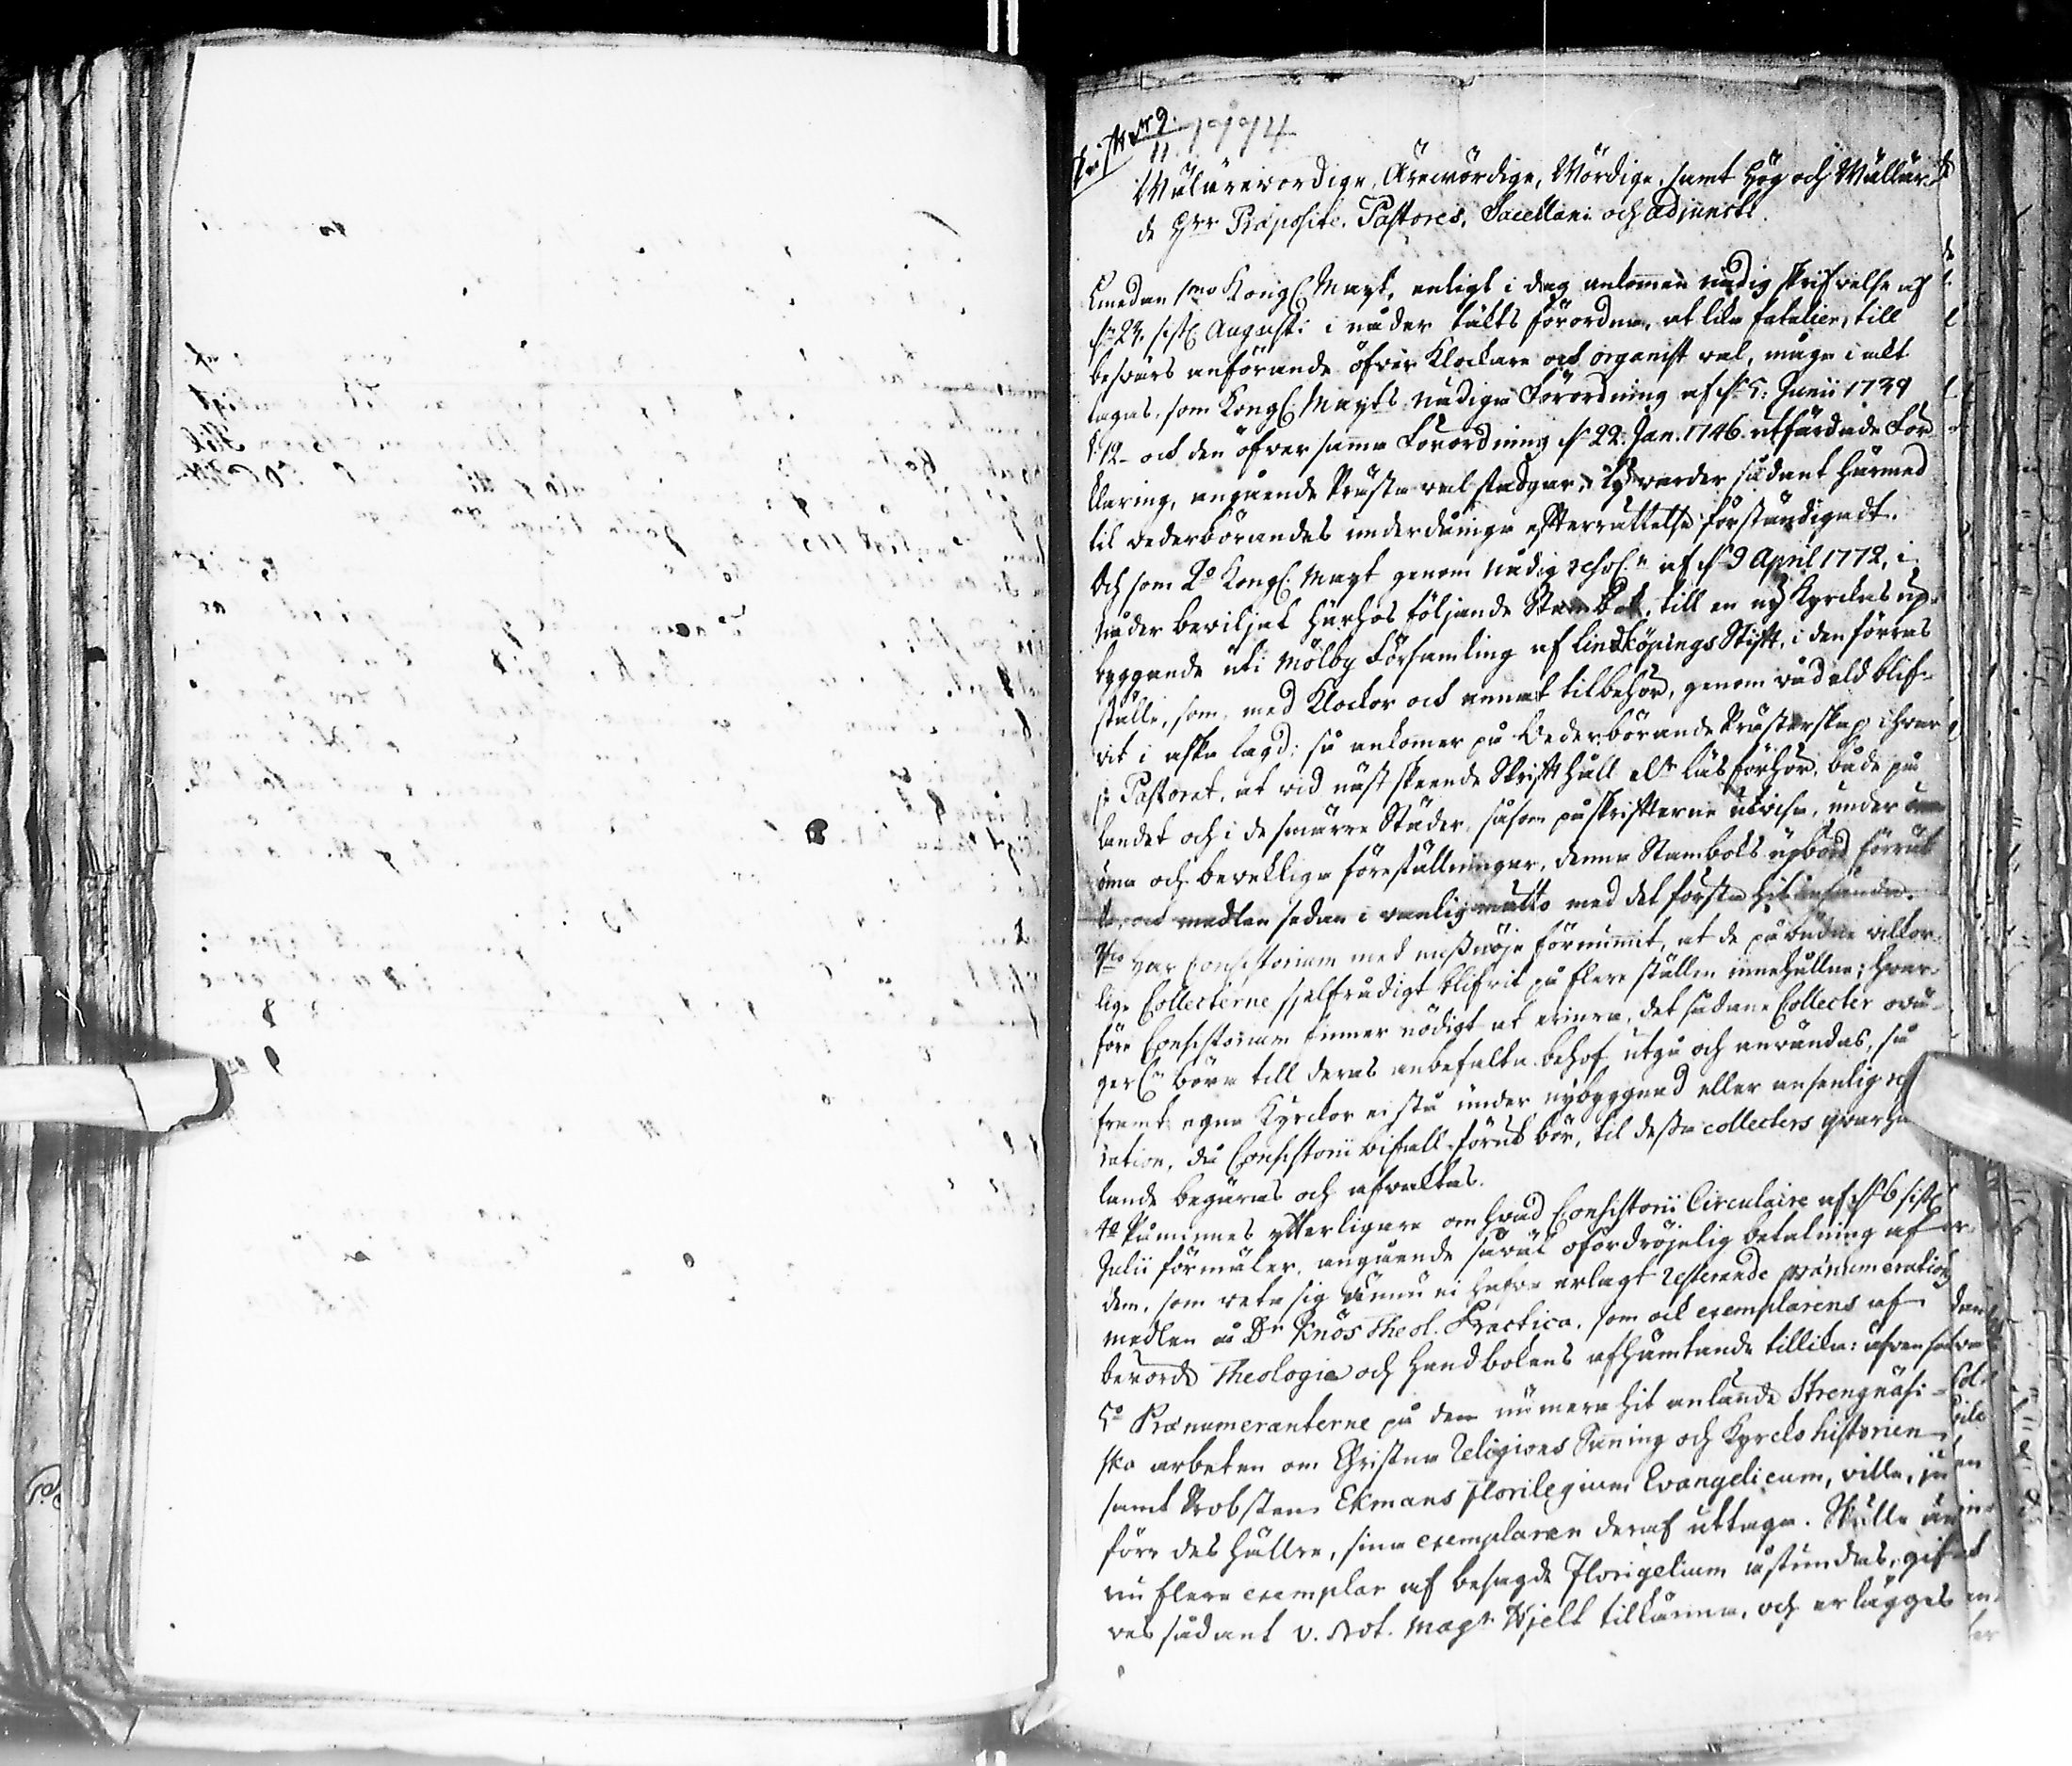 N:r 9.
11. 1774
Wälärewördige, Ärewördige, Wördige, samt Hög och Wällär-
de Hrr Præpositi, Pastores, Sacellani och Adjuncti.
Emedan 1mo Kongl. Mayt, enligt i dag ankommen nådig skrifwelse af
d. 23. sistl. Augusti i nåder täkts förordna, at lika fatalier, till
beswärs anförande öfwer Klockare och organist wal, måge i akt
tagas, som Kongl. Mayts nådiga Förordning af d. 5. Junii 1739
§ 12 och den öfwer samma Förordning d. 22. Jan. 1746 utfärdade För
klaring, angående Prästa wal stadgar; Ty warder sådant härmed
til wederbörandes underdåniga efterrättelse förständigadt.
Och som 2:o Kongl. Mayt genom nådig resol:n af d. 9 April 1772, i
nåder beviljat härhos följande Stambok, till en ny Kyrckas up-
byggande uti Mölby Församling af Lindköpings Stift, i den förras
ställe, som, med Klockor och annat tilbehör, genom wåd eld blif-
vit i aska lagd; så ankommer på Wederbörande Prästerskap i hwar-
je Pastorat, at wid näst skeende Skrifthåll eller Läsförhör, både på
landet och i de smärre Städer, såsom påskrifterne utwisa, under
öma och bewekliga föreställningar, denna Stamboks upbörd förrät
ta, och medlen sedan i wanlig måtto med det första hit insända.
3tio Har Consistorium med missnöje förnummit, at de påbudne wilkor-
lige Collecterne sjelfrådigt blifwit på flere ställen innehållne; hwar-
före Consistorium finner nödigt at erinra, det sådane Collecter owä-
gerl:n böra till deras anbefalta behof utgå och användas, så
framt egna Kyrckor ei stå under nybyggnad eller ansenlig
ration, då Consistorii bifall förut bör, til dessa collecters qwarhå
lande begäras och afwaktas.
4o Påminnes ytterligare om hwad Consistorii Circulaire af d. 6 sistl.
Julii förmäler, angående såwäl ofördröjelig betalning af
dem, som weta sig ännu ei hafwa erlagt resterande prænumerations
medlen å Dr Knös Theol. Practica, som ock exemplarens af
berörde Theologie och Handbokens afhämtande tillika: äfwen som
5o Prænumeranterne på den numera hit anlände Strengnäsi-
ska arbeten om Christna Religions Sanning och Kyrcko historien
samt Probsten Ekmans Florilegium Evangelicum, wille, ju
förr des hällre, sina exemplaren deraf uttaga. Skulle än
nu flere exemplar af besagde Florigelium åstundas, gif-
wes sådant v. Not. Mag:r Hjelt tillkänna, och erlägges